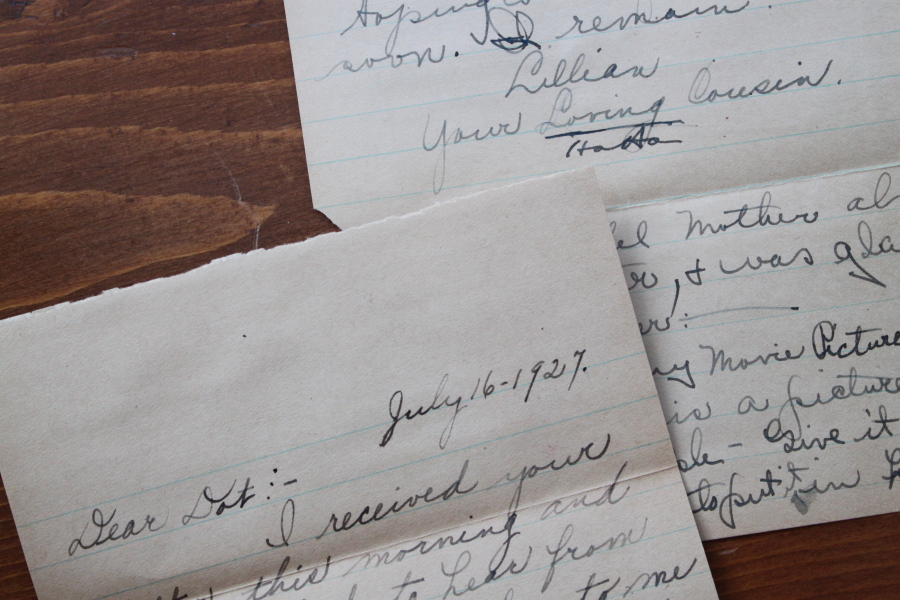 soon. I remain.
Lillian
Your Loving Cousin.
Mother
, & was
my Movie Picture
is a picture
- Give it
to put in
July 16-1927.
Dear Dot:-
I received your
this morning and
to hear from
to me